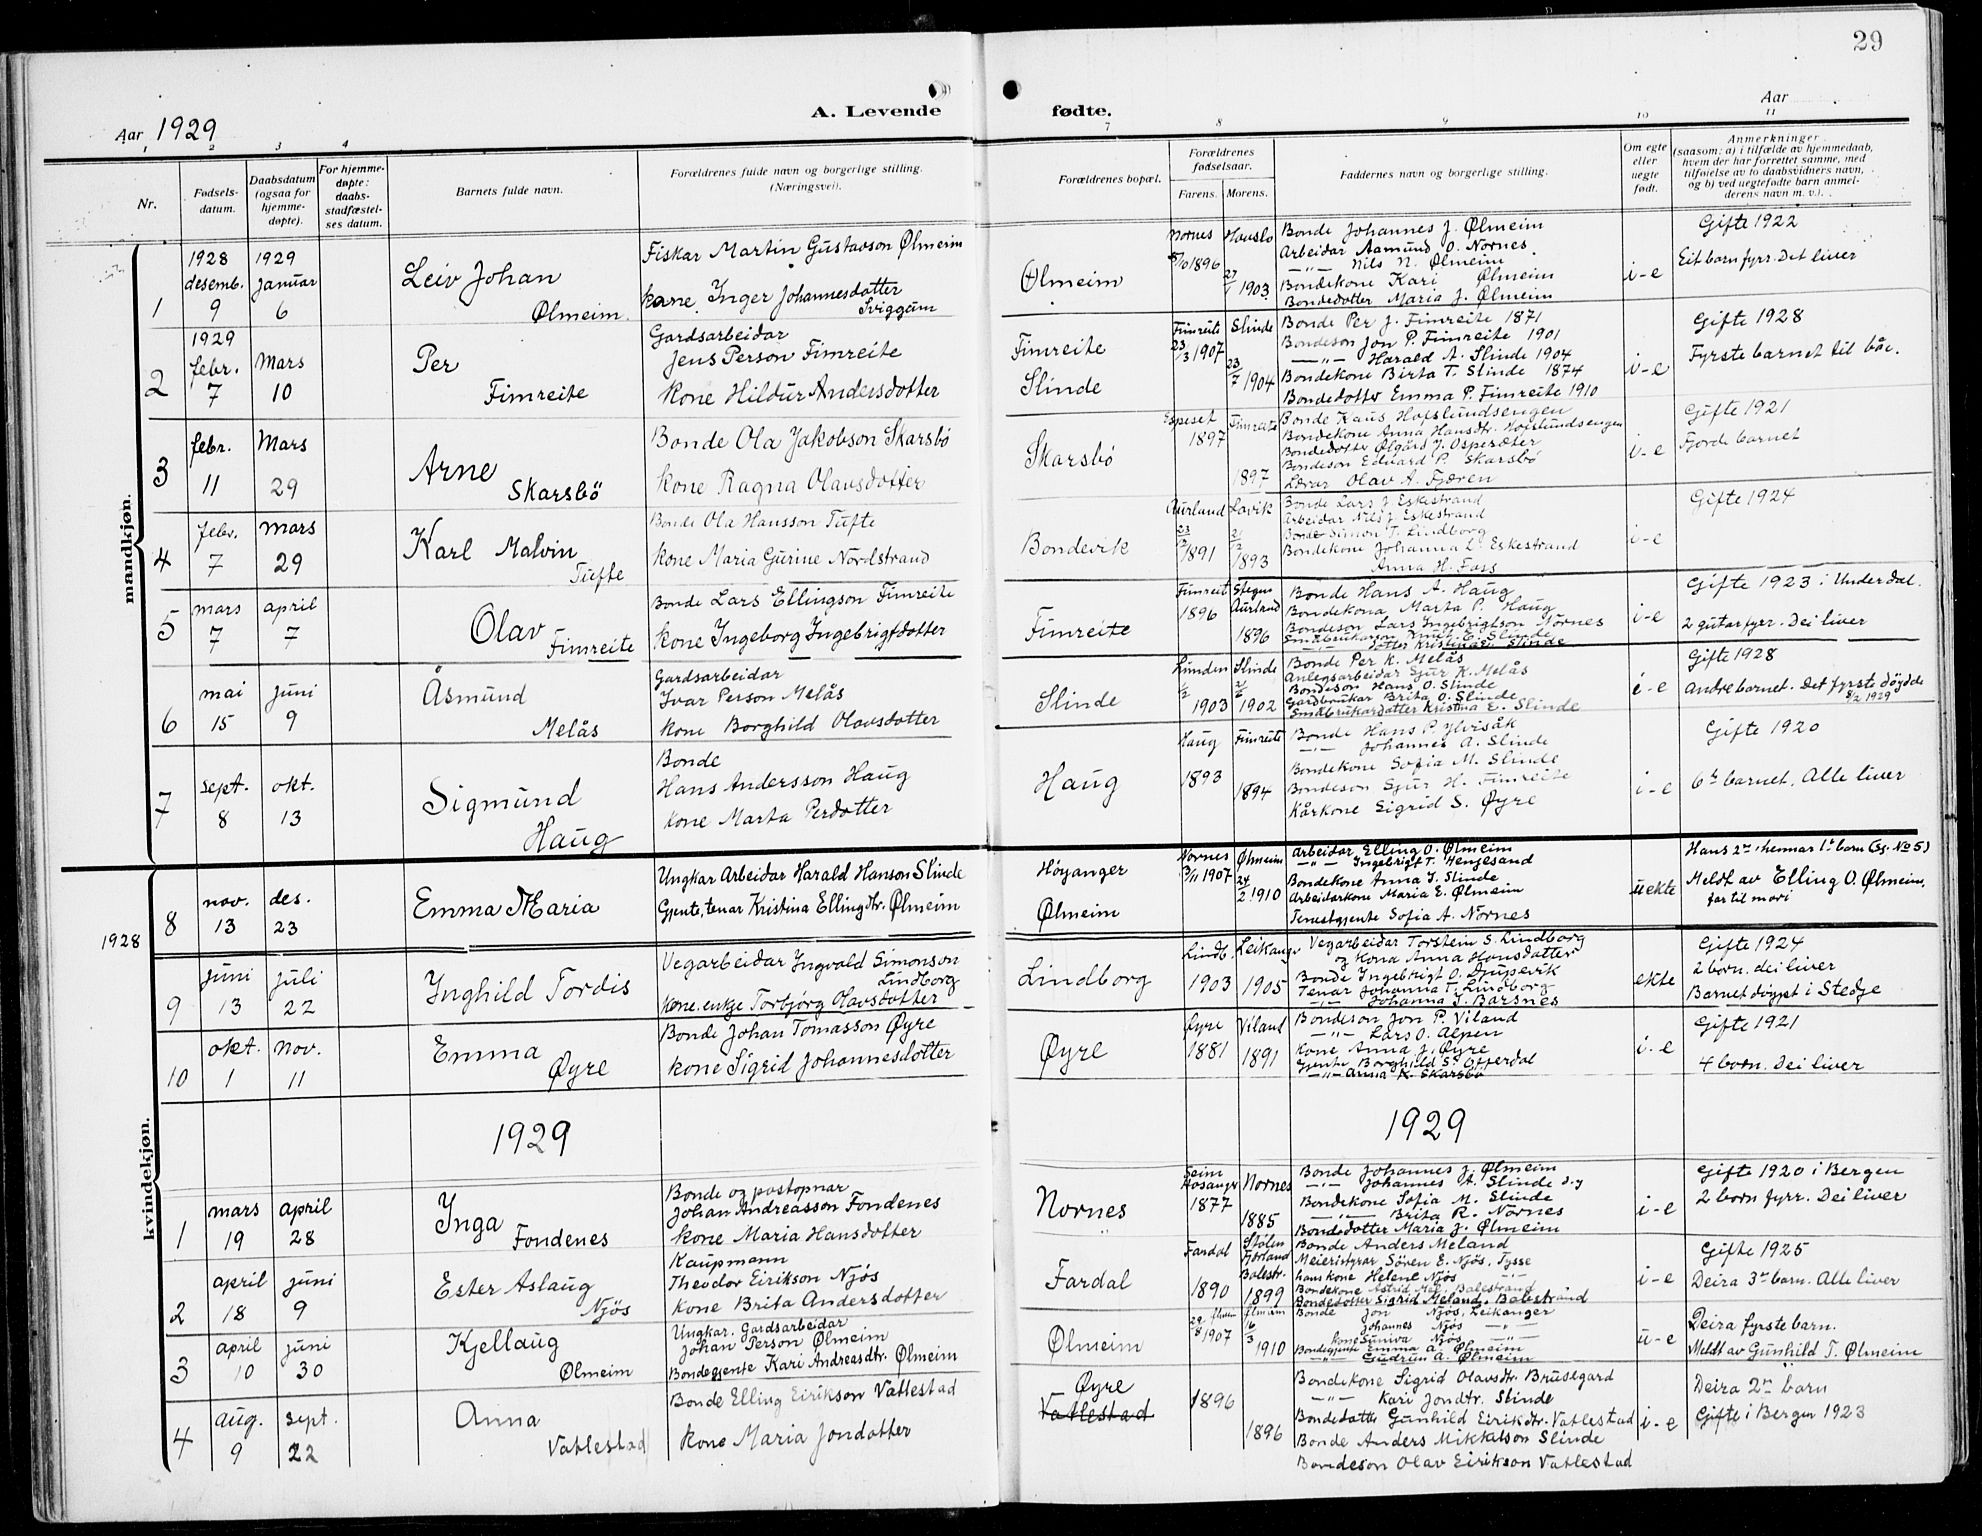 29
A. Levende fødte.
Aar 1929
Aar
1 2 3 4 7 8 9 10 11
Nr.
Fødsels-datum.
Daabsdatum (ogsaa for hjemme-døpte).
For hjemme-døpte: daabs-stadfæstel-ses datum.
Barnets fulde navn.
Forældrenes fulde navn og borgerlige stilling. (Næringsvei).
Forældrenes bopæl.
Forældrenes fødselsaar.
Farens. Morens.
Faddernes navn og borgerlige stilling.
Om egte eller uegte født.
Anmerkninger
(saasom: a) i tilfælde av hjemmedaab,
hvem der har forrettet samme, med
tilføielse av to daabsvidners navn,
og b) ved uegtefødte barn anmel-
derens navn m. v.).
mandkjøn.
1
1928 desemb. 9
1929 januar 6
Leiv Johan
Ølmeim
Fiskar Martin Gustavson Ølmeim
kone Inger Johannesdotter
Sviggum
Ølmeim
Nornes 5/10 1896
Hauslo 27/1 1903
Bonde Johannes J. Ølmeim
Arbeidar Aamund O. Nornes
—"— Nils N. Ølmeim
Bondekone Kari Ølmeim
Bondedotter Maria J. Ølmeim
i-e
Gifte 1922
Eit barn fyrr. Det liver
2
1929 febr. 7
Mars 10
Per
Fimreite
Gardsarbeidar
Jens Person Fimreite
kone Hildur Andersdotter
Fimreite
Slinde
Fimreite 23/3 1907
Slinde 23/7 1904
Bonde Per J. Fimreite 1871
Bondeson Jon P. Fimreite 1901
—"— Harald A. Slinde 1904
Bondekone Birta T. Slinde 1874
Bondedotter Emma P. Fimreite 1910
i-e
Gifte 1928
Fyrste barnet til båe.
3
febr. 11
Mars 29
Arne
Skarsbö
Bonde Ola Jakobson Skarsbö
kone Ragna Olavsdotter
Skarsbö
Espeset 1897
Fimreite 1897
Bonde Hans Hofslundsengen
Bondekone Anna Hansdtr. Hofslundsengen
Bondedotter Ølgård J. Ospesæter
Bondeson Edvard P. Skarsbö
Lærar Olav A. Fjæren
i-e
Gifte 1921
Fjorde barnet
4
febr. 7
mars 29
Karl Malvin
Tufte
Bonde Ola Hansson Tufte
kone Maria Gurine Nordstrand
Bondevik
Aurland 23/12 1891
Lavik 2/12 1893
Bonde Lars J. Eskestrand
Arbeidar Nils J. Eskestrand
Bonde Simon T. Lindborg
Bondekone Johanna L. Eskestrand
Anna H. Foss
i-e
Gifte 1924
5
mars 7
april 7
Olav
Fimreite
Bonde Lars Ellingson Fimreite
kone Ingeborg Ingebrigtdotter
Fimreite
Fimreit 1896
Stegen Aurland 1896
Bonde Hans A. Haug
Bondekona Marta P. Haug
Bondeson Lars Ingebrigtson Nornes
Småbrukarson Knut E. Slinde
—"— dotter Kristina E. Slinde
i-e
Gifte 1923 i Underdal.
2 gutar fyrr. Dei liver
6
mai 15
juni 9
Åsmund
Melås
Gardsarbeidar
Ivar Person Melås
kone Borghild Olavsdotter
Slinde
Lunden 1/2 1903
Slinde 2/6 1902
Bonde Per K. Melås
Anlegsarbeidar Sjur K. Melås
Bondeson Hans O. Slinde
Gardbrukar Brita O. Slinde
Småbrukardotter Kristina E. Slinde
i-e
Gifte 1928
Andre barnet. Det fyrste döydde
8/2 1929
7
sept. 8
okt. 13
Sigmund
Haug
Bonde
Hans Andersson Haug
kone Marta Perdotter
Haug
Haug 1893
Fimreite 1894
Bonde Hans P. Ylvisåk
—"— Johannes A. Slinde
Bondekone Sofia M. Slinde
Bondeson Sjur H. Fimreite
Kårkone Sigrid S. Øyre
i-e
Gifte 1920
6te barnet. Alle liver
kvindekjøn.
1928
8
nov. 13
des. 23
Emma Maria
Ungkar Arbeidar Harald Hanson Slinde
Gjente, tenar Kristina Ellingdtr. Ølmeim
Höyanger
Ølmeim
Nornes 3/11 1907
Ølmeim 24/2 1910
Arbeidar Elling O. Ølmeim
—"— Ingebrigt T. Hengjesand
Bondekone Anna J. Slinde
Arbeidarkone Maria E. Ølmeim
Tenestgjente Sofia A. Nornes
uekte
Hans 2re, hennar 1te barn (Sj. No 5)
Meldt av Elling O. Ølmeim,
far til mori
9
juni 13
juli 22
Inghild Tordis
Vegarbeidar Ingvald Simonson
Lindborg
kone, enkje Torbjörg Olavsdotter
Lindborg
Lindb. 1903
Leikangr 1905
Vegarbeidar Torstein S. Lindborg
og kona Anna Hansdotter
Bonde Ingebrigt O. Djupevik
Tenar Johanna T. Lindborg
—"— Johanna J. Barsnes
ekte
Gifte 1924
2 born. dei liver
Barnet döypt i Stedje
10
okt. 1
nov. 11
Emma
Øyre
Bonde Johan Tomasson Øyre
kone Sigrid Johannesdotter
Øyre
Øyre 1881
Viland 1891
Bondeson Jon P. Viland
—"— Lars O. Alpen
kone Anna J. Øyre
Gjente Borghild S. Offerdal
—"— Anna K. Skarsbö
i-e
Gifte 1921
4 born. Dei liver
1929
1929
1
mars 19
april 28
Inga
Fondenes
Bonde og postopnar
Johan Andreasson Fondenes
kone Maria Hansdotter
Nornes
Seim Hosanger 1877
Nornes 1885
Bonde Johannes J. Ølmeim
—"— Johannes A. Slinde d.y
Bondekone Sofia M. Slinde
—"— Brita R. Nornes
Bondedotter Maria J. Ølmeim
i-e
Gifte 1920 i Bergen
2 born fyrr. Dei liver
2
april 18
juni 9
Ester Aslaug
Njös
Kaupmann
Theodor Eirikson Njös
kone Brita Andersdotter
Fardal
Fardal 1890
Stölen Fjærland Balestr. 1899
Bonde Anders Meland
Meieristyrar Sören E. Njös, Tysse
hans kone Helene Njös —"—
Bondekone Astrid Mel., Balestrand
Bondedotter Sigrid Meland, Balestrand
i-e
Gifte 1925
Deira 3dje barn. Alle liver
3
april 10
juni 30
Kjellaug
Ølmeim
Ungkar. Gardsarbeidar
Johan Person Ølmeim
Bondegjente Kari Andreasdtr. Ølmeim
Ølmeim
29/8 1907
Ølmeim 16/3 1910
Bonde Jon Njös, Leikanger
Johannes Njös —"—
kone Sunniva Njös —"—
Bondegjente Emma A. Ølmeim
—"— Gudrun A. Ølmeim
u-e
Deira fyrste barn.
Meldt av Gunhild T. Ølmeim
4
aug. 9
sept. 22
Anna
Vatlestad
Bonde Elling Eirikson Vatlestad
kone Maria Jondotter
Øyre
Vatlestad
1896
1896
Bondekone Sigrid Olavsdtr. Brusegard
—"— Kari Jondtr. Slinde
Bondedotter Gunhild Eirikdtr. Vatlestad
Bonde Anders Mikkalson Slinde
Bondeson Olav Eirikson Vatlestad
i-e
Deira 2re barn
Gifte i Bergen 1923